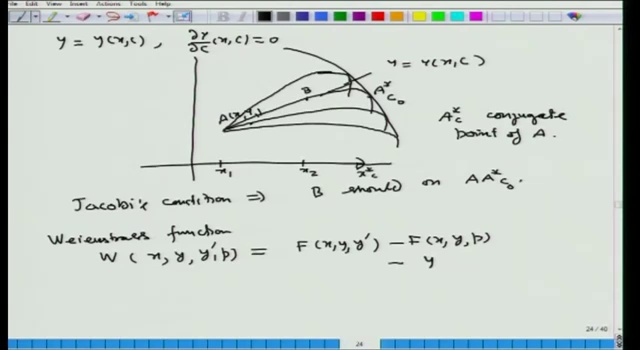 File Edit View Insert Actions Tools Help
y = y(x,c) , ∂y/∂c (x,c) = 0
y = y(x,c)
B
A*c₀
A(x₁,y₁)
A*c conjugate
point of A.
x₁ x₂ x*c
Jacobi's condition ⇒ B should on AA*c₀.
Weierstrass function
W ( x, y, y', p) = F(x,y,y') – F(x,y,p)
– y
24 / 40
24